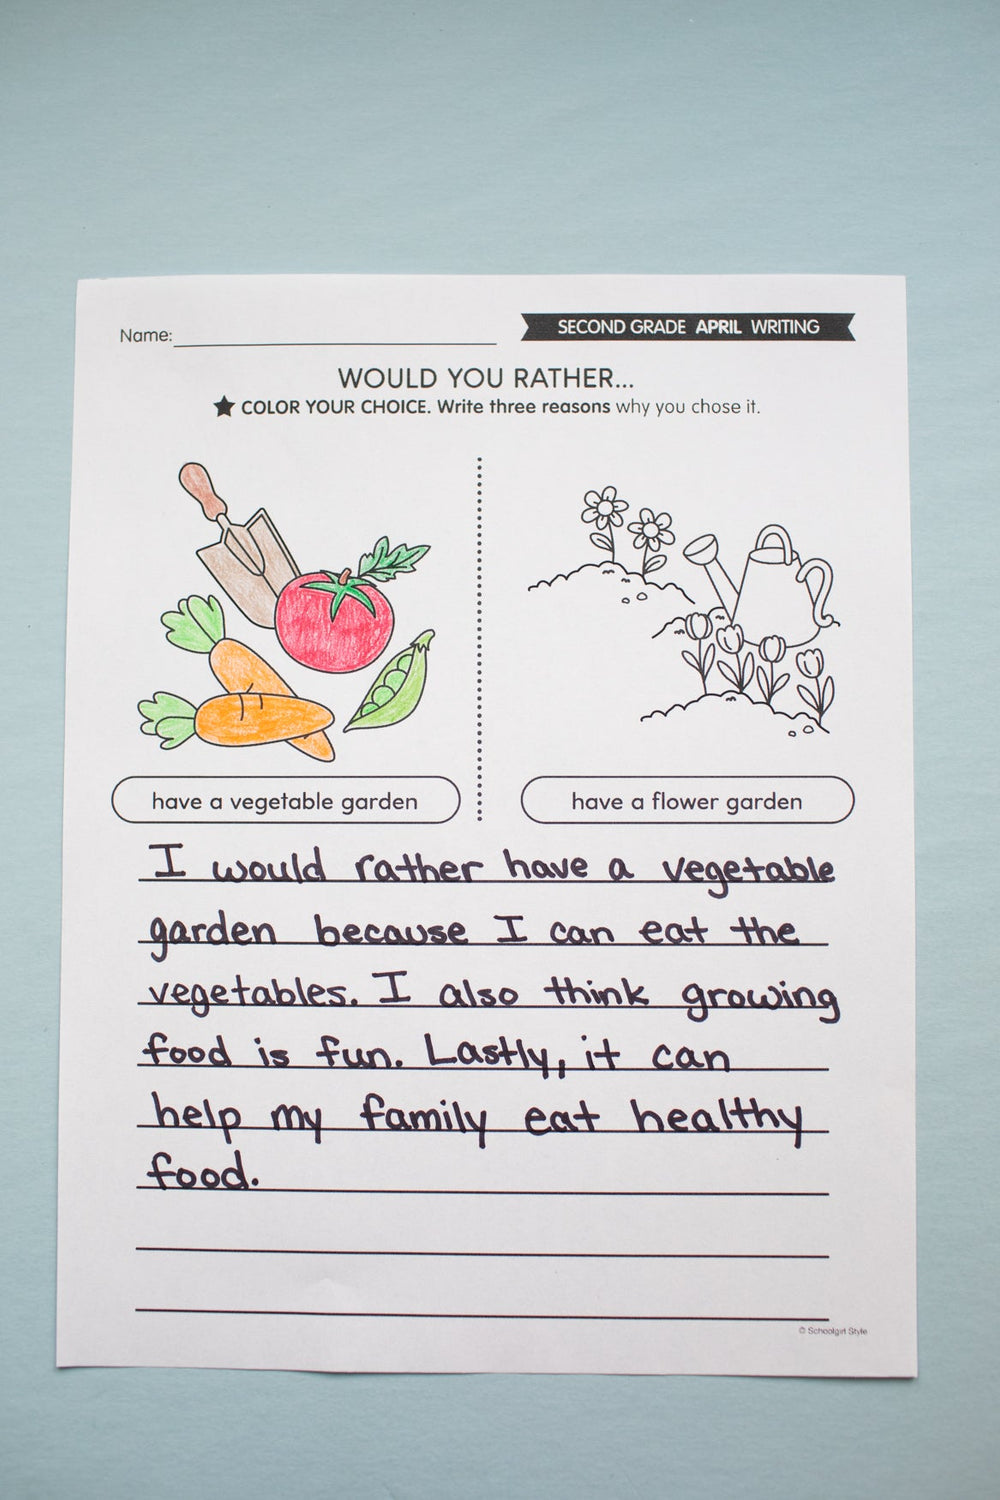 Name:
SECOND GRADE APRIL WRITING
WOULD YOU RATHER...
★ COLOR YOUR CHOICE. Write three reasons why you chose it.
have a vegetable garden
have a flower garden
I would rather have a vegetable
garden because I can eat the
vegetables. I also think growing
food is fun. Lastly, it can
help my family eat healthy
food.
© Schoolgirl Style